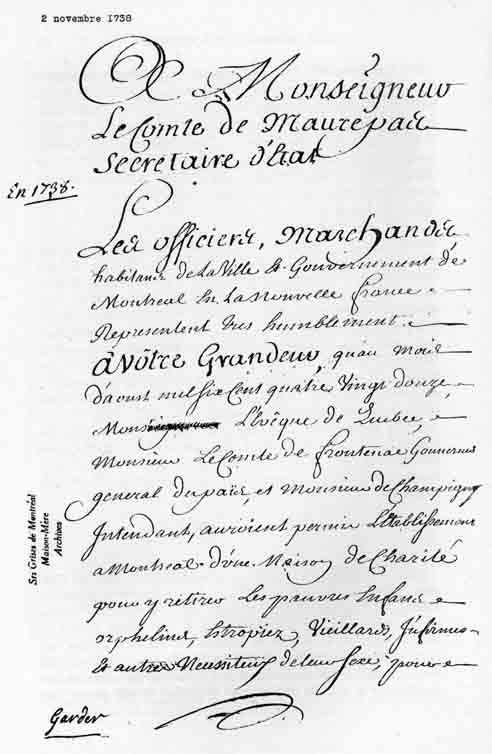 2 novembre 1738
A Monseigneur
Le Comte de Maurepas
Secretaire d'Etat
En 1738.
Les officiers, Marchands
habitans de La Ville Et Gouvernement de
Montreal En La Nouvelle france
Representent tres humblement
à Vôtre Grandeur, qu'au Mois
d'aoust mil Six Cent quatre Vingt douze
L'Evêque de Quebec,
Monsieur Le Comte de frontenac Gouverneur
general du païs, et Monsieur de Champigny
Intendant, auroient permis L'Etablissement
a Montreal d'une Maison de Charité
pour y retirer Les pauvres Enfans
orphelins, Estropiez, Vieillards, Infirmes
Et autres Necessiteux de leur Sexe, pour
Garder
Srs Grises de Montréal
Maison-Mère
Archives